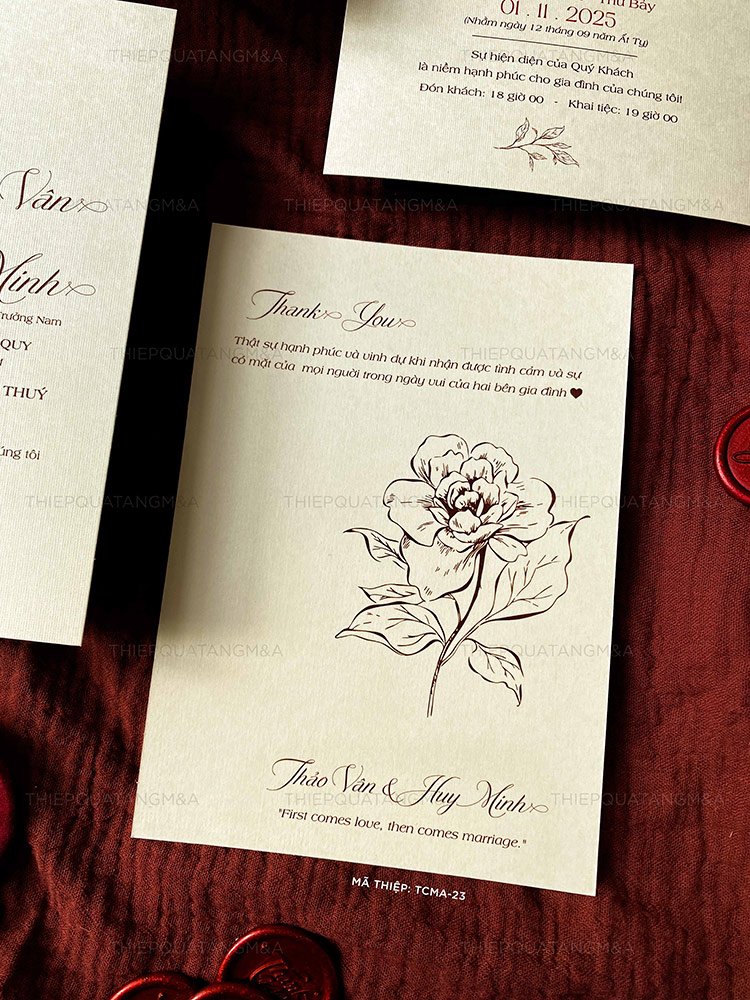 Thứ Bảy
01 . 11 . 2025
(Nhằm ngày 12 tháng 09 năm Ất Tỵ)
Sự hiện diện của Quý Khách
là niềm hạnh phúc cho gia đình của chúng tôi!
Đón khách: 18 giờ 00 - Khai tiệc: 19 giờ 00
Vân
Minh
Trưởng Nam
QUY
THUÝ
úng tôi
Thank You
Thật sự hạnh phúc và vinh dự khi nhận được tình cảm và sự
có mặt của mọi người trong ngày vui của hai bên gia đình ❤
Thảo Vân & Huy Minh
"First comes love, then comes marriage."
MÃ THIỆP: TCMA-23
THIEPQUATANGM&A